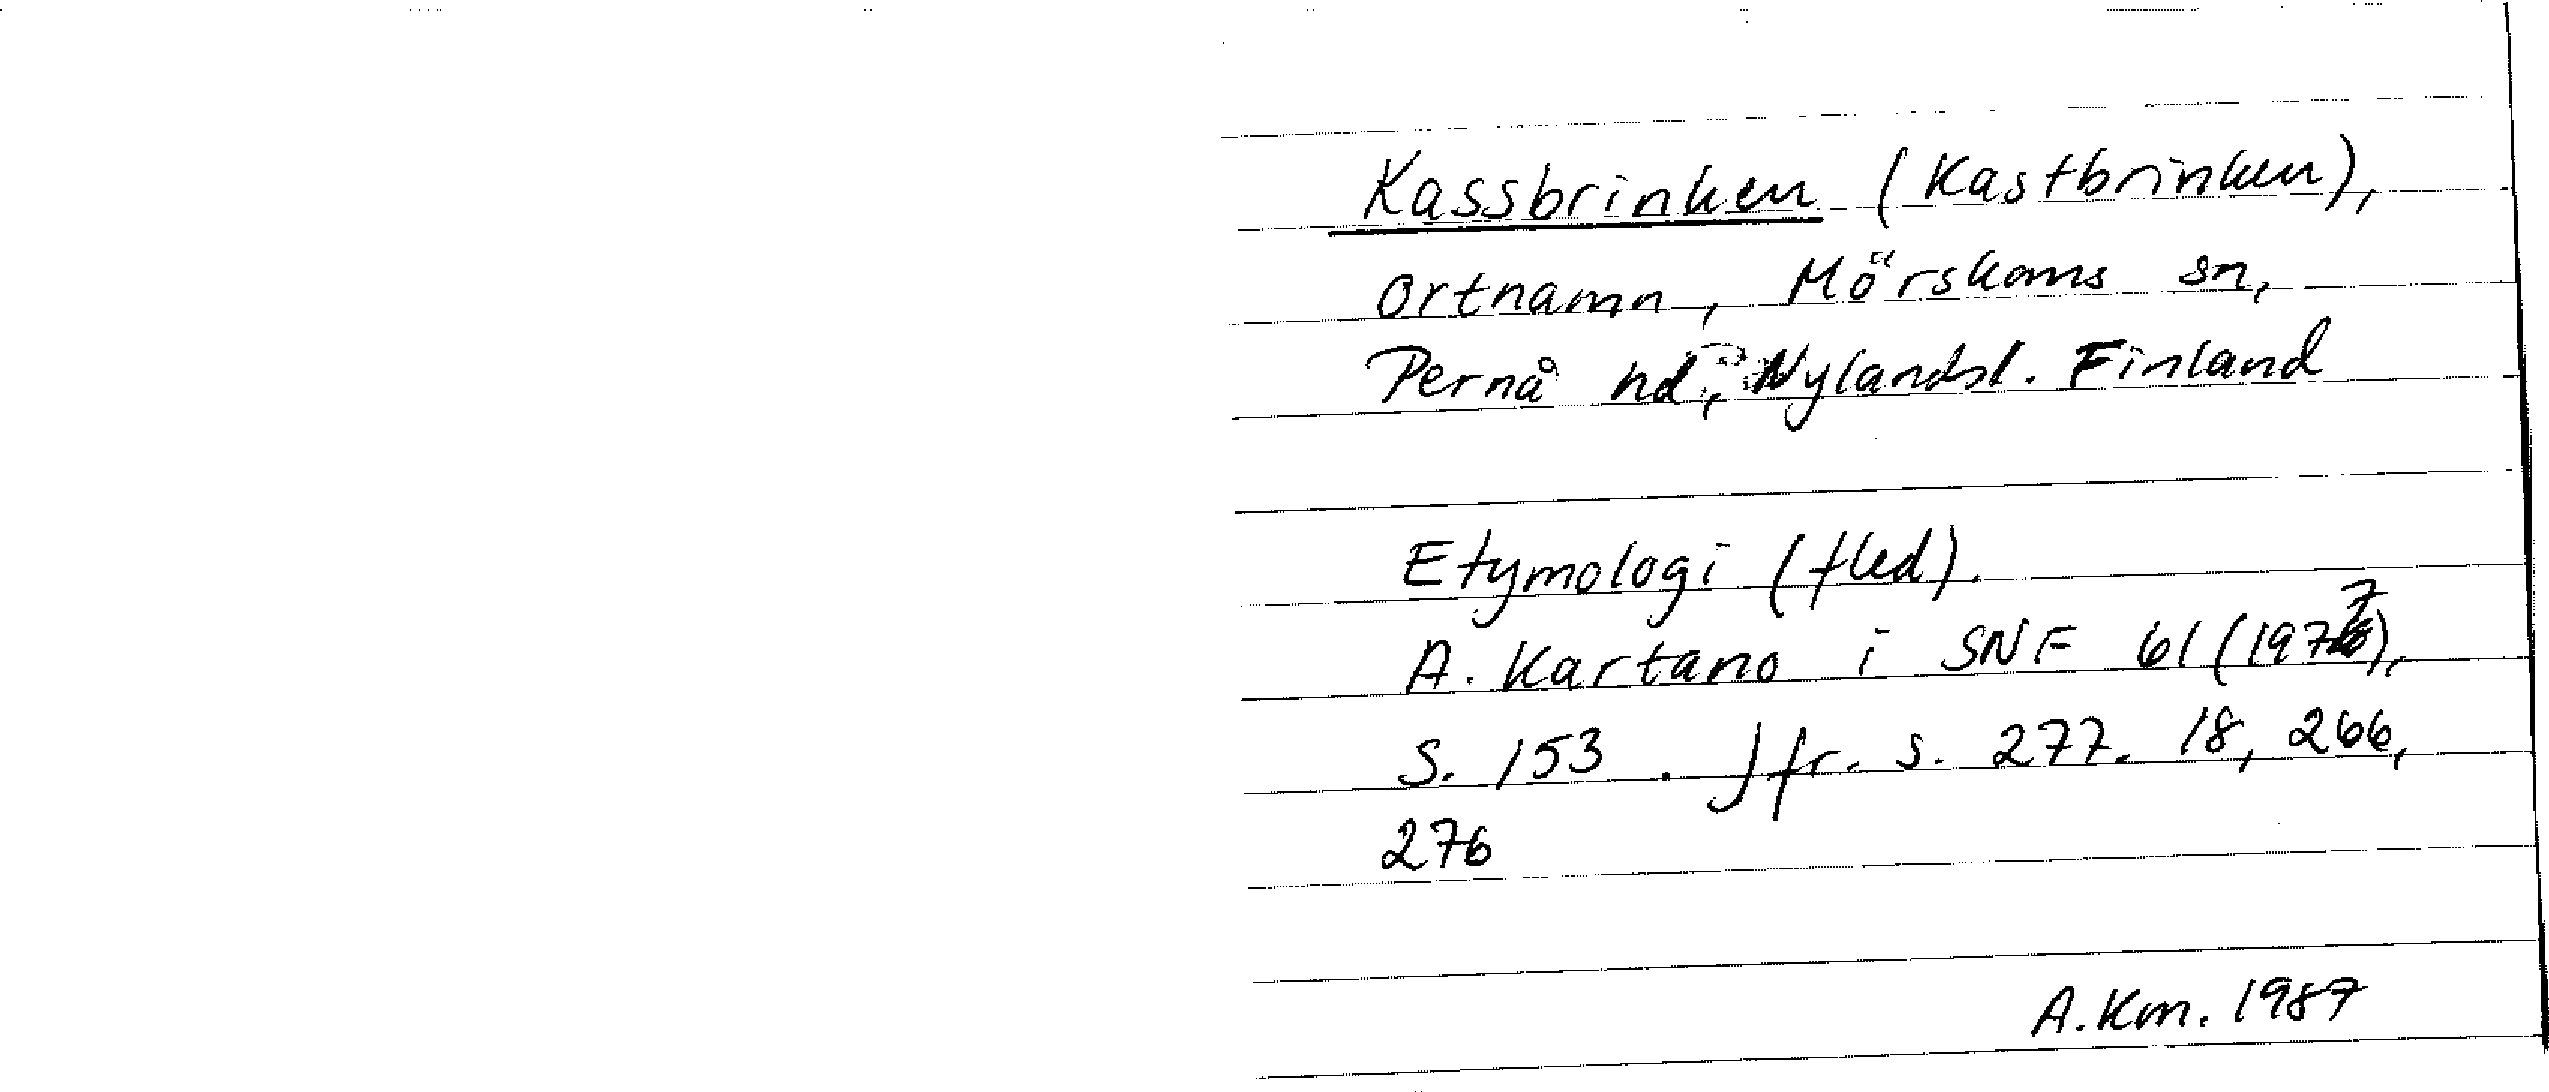 Kassbrinken (Kastbrinken),
ortnamn, Mörskoms sn,
Pernå hd, Nylandsl. Finland
Etymologi (fled).
A. Kartano i SNF 61 (1977),
S. 153. Jfr. s. 277. 18, 266,
276
A.Km. 1987